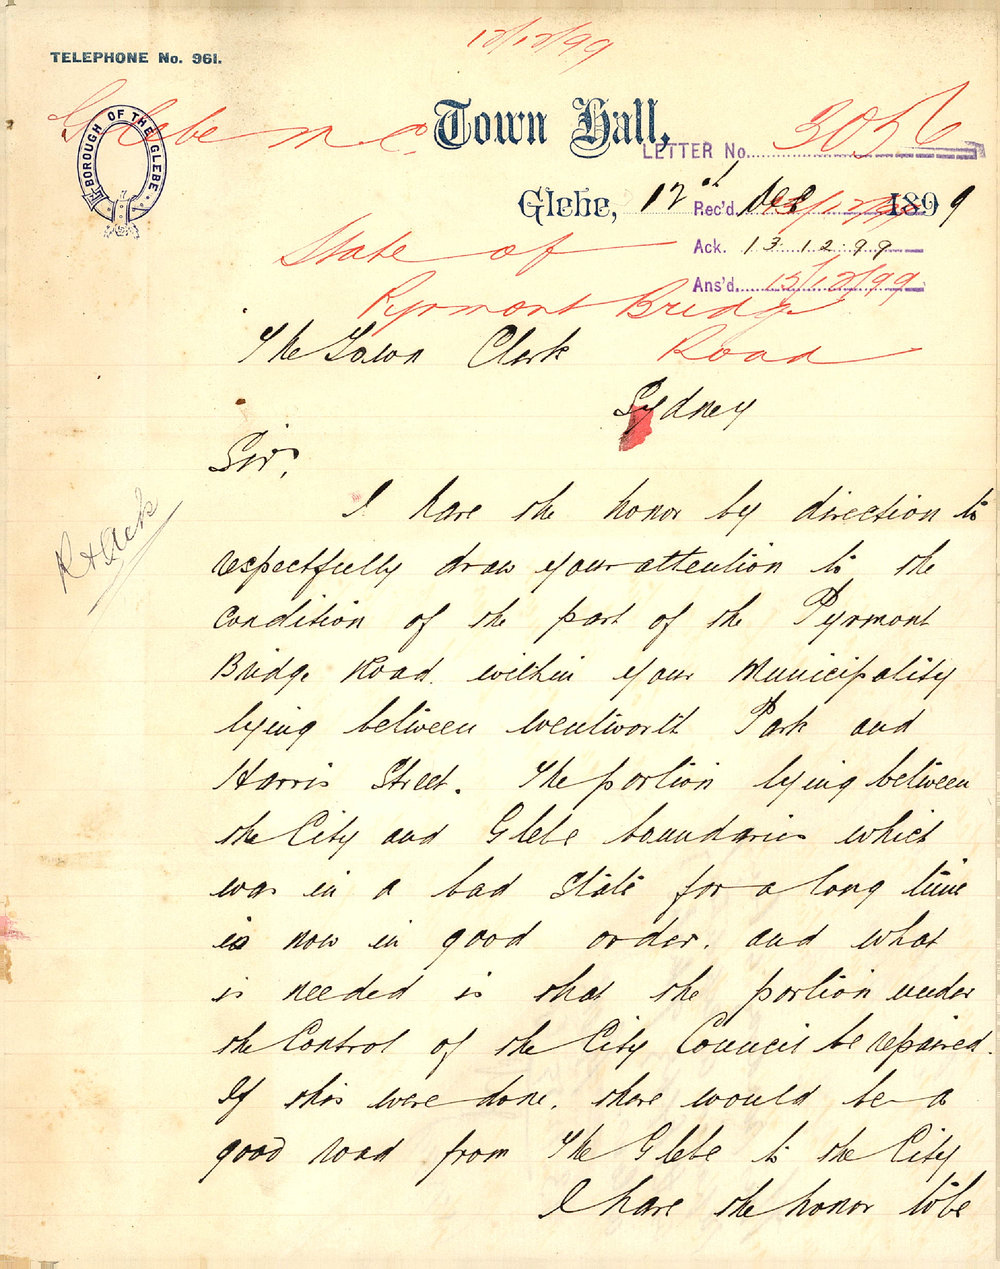 12/12/99
TELEPHONE No. 961.
Glebe M.C.
BOROUGH OF THE GLEBE
Town Hall,
LETTER No. 3056
Glebe, 12th Dec 1899
Rec'd 13/12/99
Ack. 13.12.99
Ans'd. 15/12/99
State of
Pyrmont Bridge
Road
The Town Clerk
Sydney
Sir,
I have the honor by direction to
respectfully draw your attention to the
condition of the part of the Pyrmont
Bridge Road within your Municipality
lying between Wentworth Park and
Harris Street. The portion lying between
the City and Glebe boundaries which
was in a bad state for a long time
is now in good order. and what
is needed is that the portion under
the Control of the City Council be repaired.
If this were done, there would be a
good road from The Glebe to the City
I have the honor to be